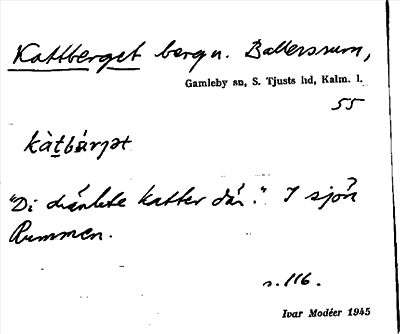 Kattberget berg n. Ballersrum,
Gamleby sn, S. Tjusts hd, Kalm. l.
55
kàtbárjət
"Di dränkte katter där." I sjön
Rummen.
s. 116.
Ivar Modéer 1945